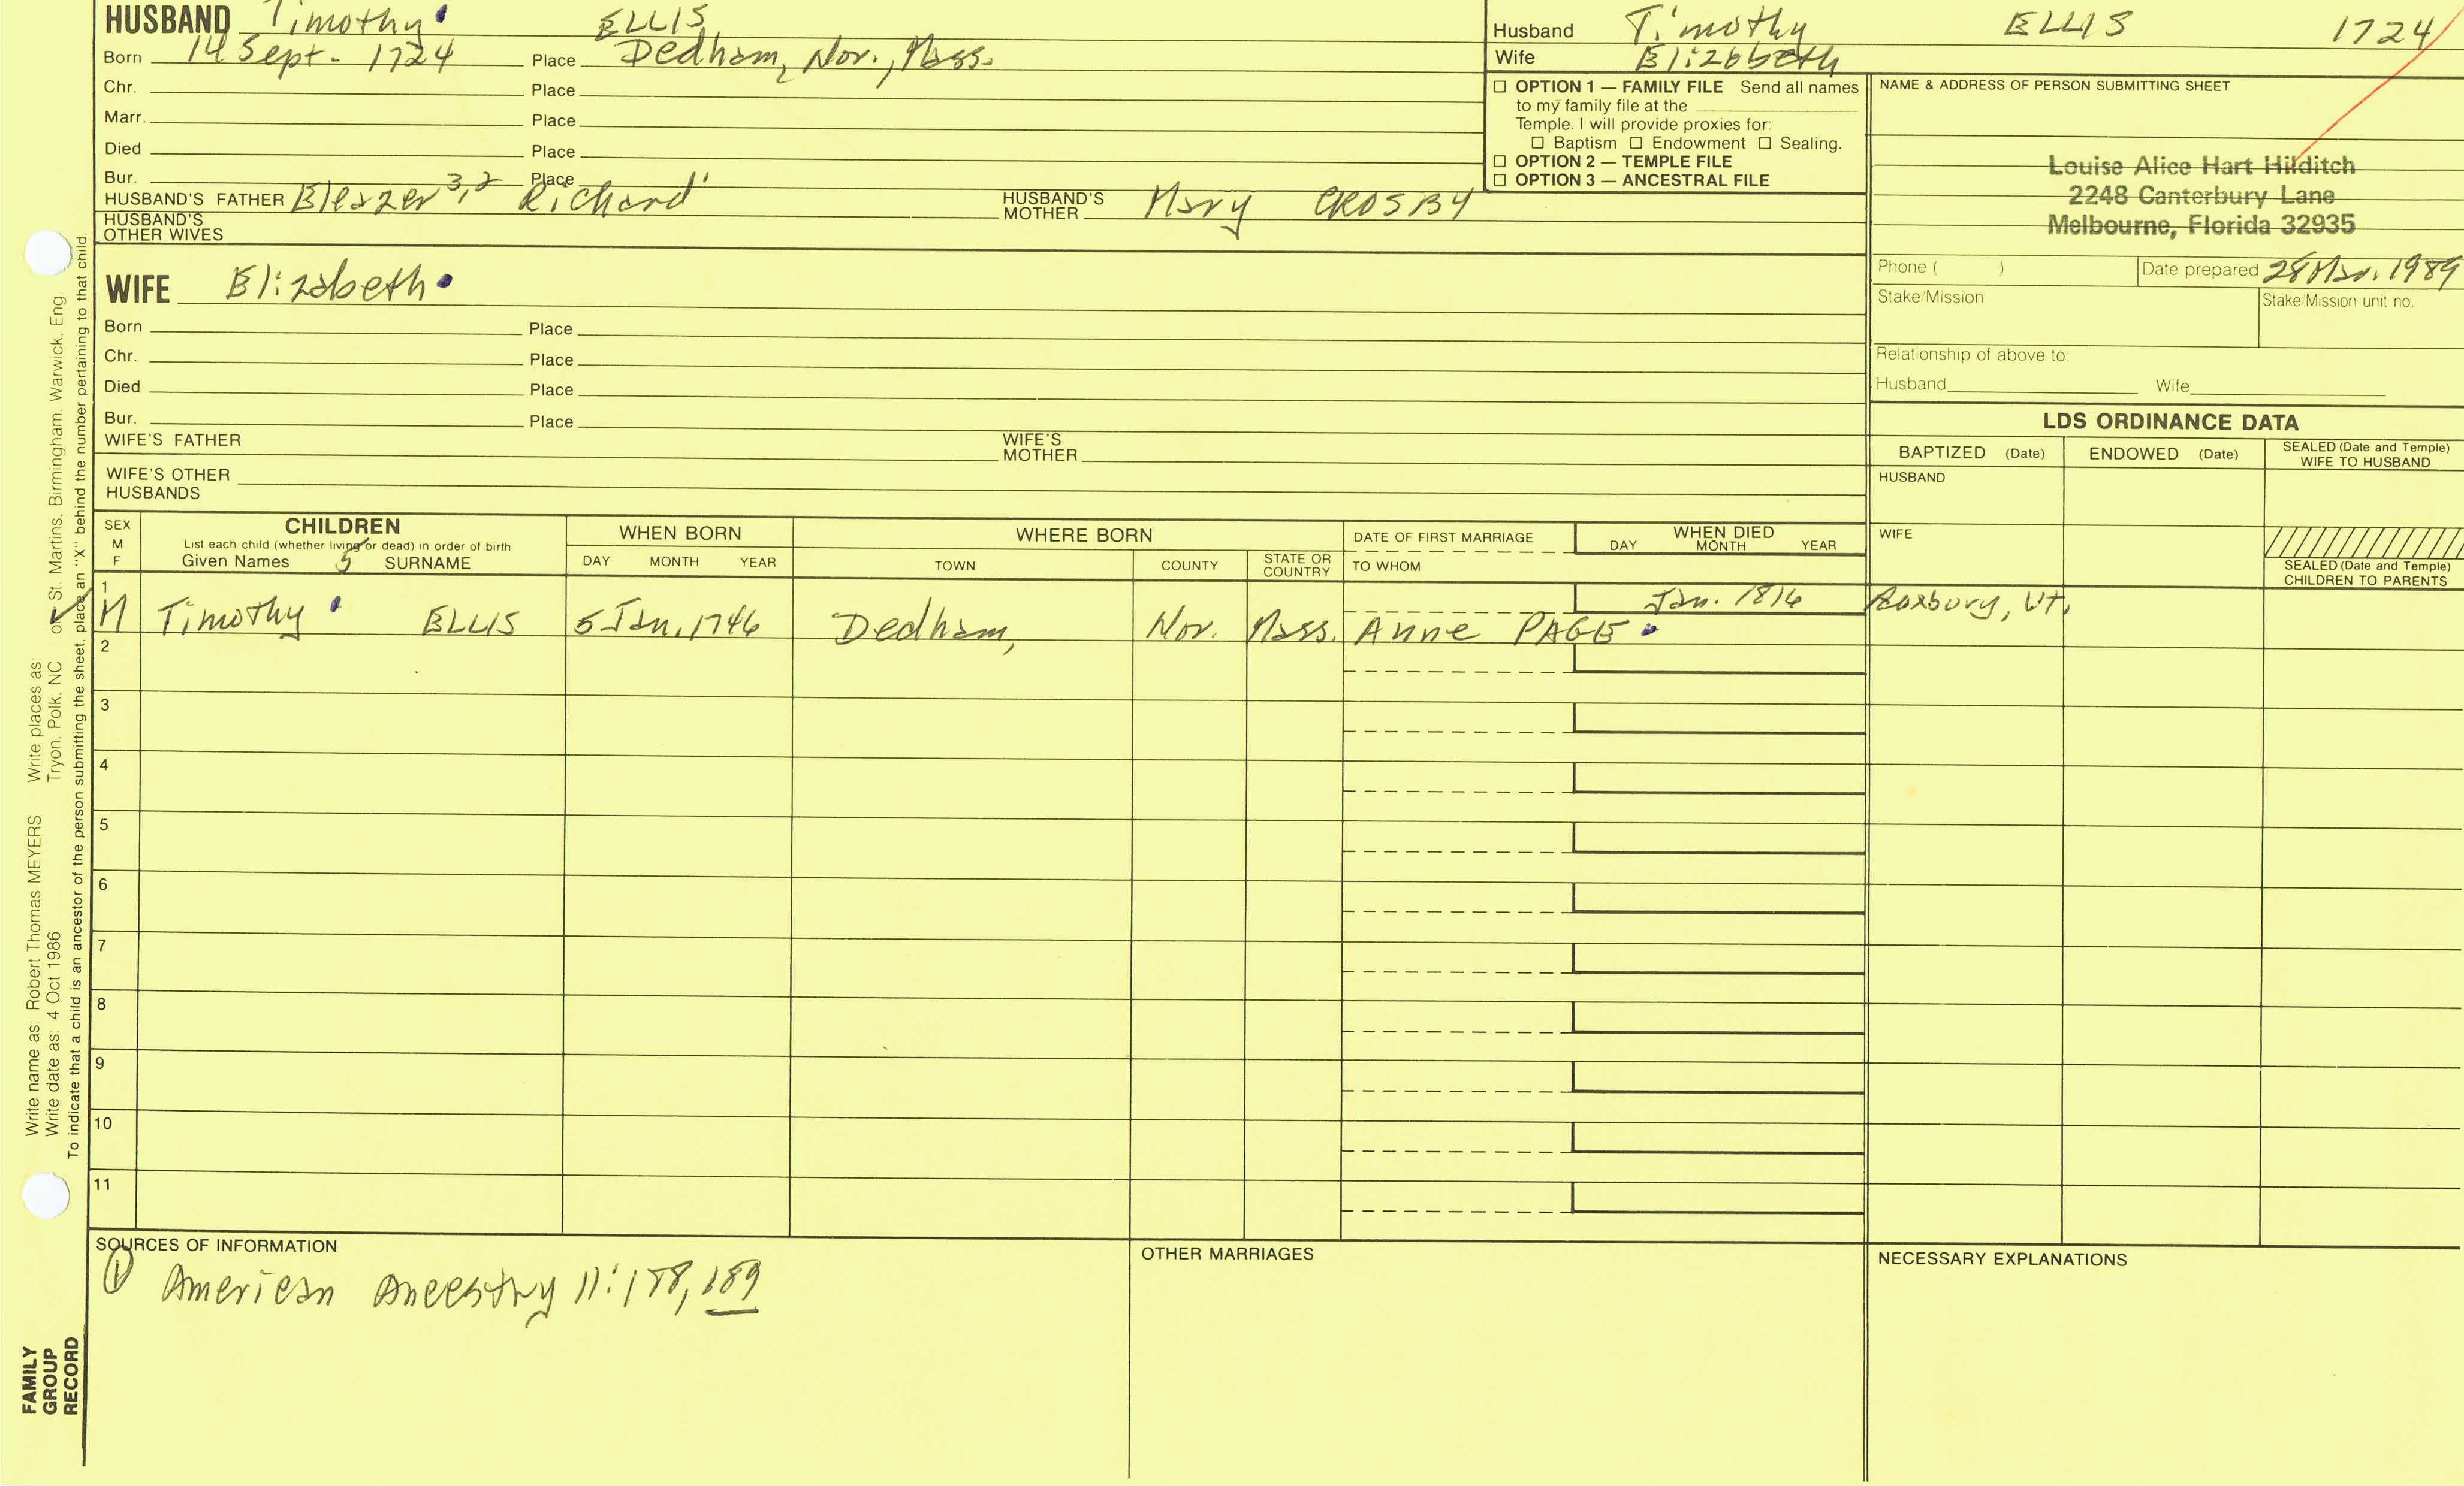 HUSBAND Timothy ELLIS
Born 14 Sept. 1724 Place Dedham, Nor., Mass.
Chr. Place
Marr. Place
Died Place
Bur. Place
HUSBAND'S FATHER Eleazer 3,2 Richard 1 HUSBAND'S MOTHER Mary CROSBY
HUSBAND'S OTHER WIVES
Husband Timothy ELLIS 1724
Wife Elizabeth
☐ OPTION 1 — FAMILY FILE Send all names
to my family file at the
Temple. I will provide proxies for:
☐ Baptism ☐ Endowment ☐ Sealing.
☐ OPTION 2 — TEMPLE FILE
☐ OPTION 3 — ANCESTRAL FILE
NAME & ADDRESS OF PERSON SUBMITTING SHEET
Louise Alice Hart Hilditch
2248 Canterbury Lane
Melbourne, Florida 32935
Phone ( ) Date prepared 28 Mar. 1989
Stake/Mission Stake/Mission unit no.
Relationship of above to:
Husband Wife
WIFE Elizabeth
Born Place
Chr. Place
Died Place
Bur. Place
WIFE'S FATHER WIFE'S MOTHER
WIFE'S OTHER
HUSBANDS
LDS ORDINANCE DATA
BAPTIZED (Date) ENDOWED (Date) SEALED (Date and Temple) WIFE TO HUSBAND
HUSBAND
WIFE
SEALED (Date and Temple) CHILDREN TO PARENTS
SEX
M
F
CHILDREN
List each child (whether living or dead) in order of birth
Given Names 5 SURNAME
WHEN BORN
DAY MONTH YEAR
WHERE BORN
TOWN COUNTY STATE OR COUNTRY
DATE OF FIRST MARRIAGE
TO WHOM
WHEN DIED
DAY MONTH YEAR
1 Jan. 1816 Roxbury, Vt.
M Timothy ELLIS 5 Jan. 1746 Dedham, Nor. Mass. Anne PAGE
2
3
4
5
6
7
8
9
10
11
SOURCES OF INFORMATION
① American Ancestry 11:188, 189
OTHER MARRIAGES
NECESSARY EXPLANATIONS
Write name as: Robert Thomas MEYERS Write places as:
Write date as: 4 Oct 1986 Tryon, Polk, NC or St. Martins, Birmingham, Warwick, Eng.
To indicate that a child is an ancestor of the person submitting the sheet, place an "X" behind the number pertaining to that child.
FAMILY
GROUP
RECORD